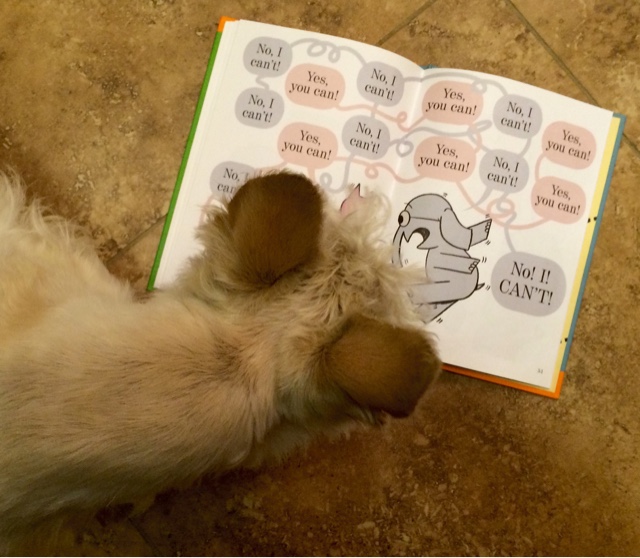 No, I
can't!
Yes,
you can!
No, I
can't!
Yes,
you can!
No, I
can't!
Yes,
you can!
No, I
can't!
Yes,
you can!
No, I
can't!
Yes,
you can!
No, I
can't!
Yes,
you can!
No, I
No! I!
CAN'T!